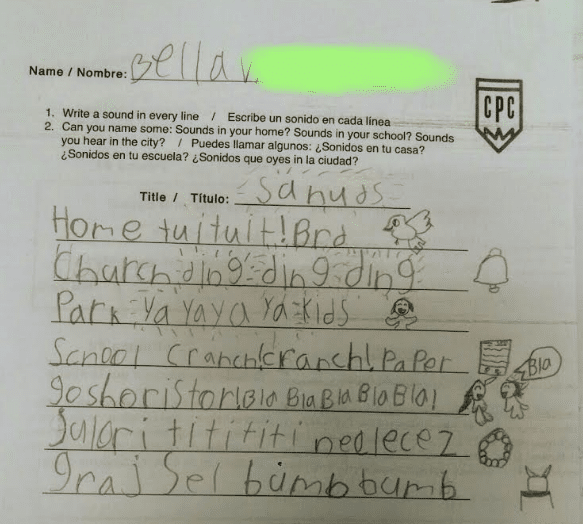 Name / Nombre: Bella V.
CPC
1. Write a sound in every line / Escribe un sonido en cada línea
2. Can you name some: Sounds in your home? Sounds in your school? Sounds
you hear in the city? / Puedes llamar algunos: ¿Sonidos en tu casa?
¿Sonidos en tu escuela? ¿Sonidos que oyes in la ciudad?
Title / Título: Sanuds
Home tuituit! Brd
Church ding-ding-ding
Park Ya Ya Ya Ya Kids
School Cranch! cranch! PaPer
goshoristorl Bla Bla Bla Bla Bla!
Bla
Julori ti ti ti ti neclecez
graj Sel bumb bumb